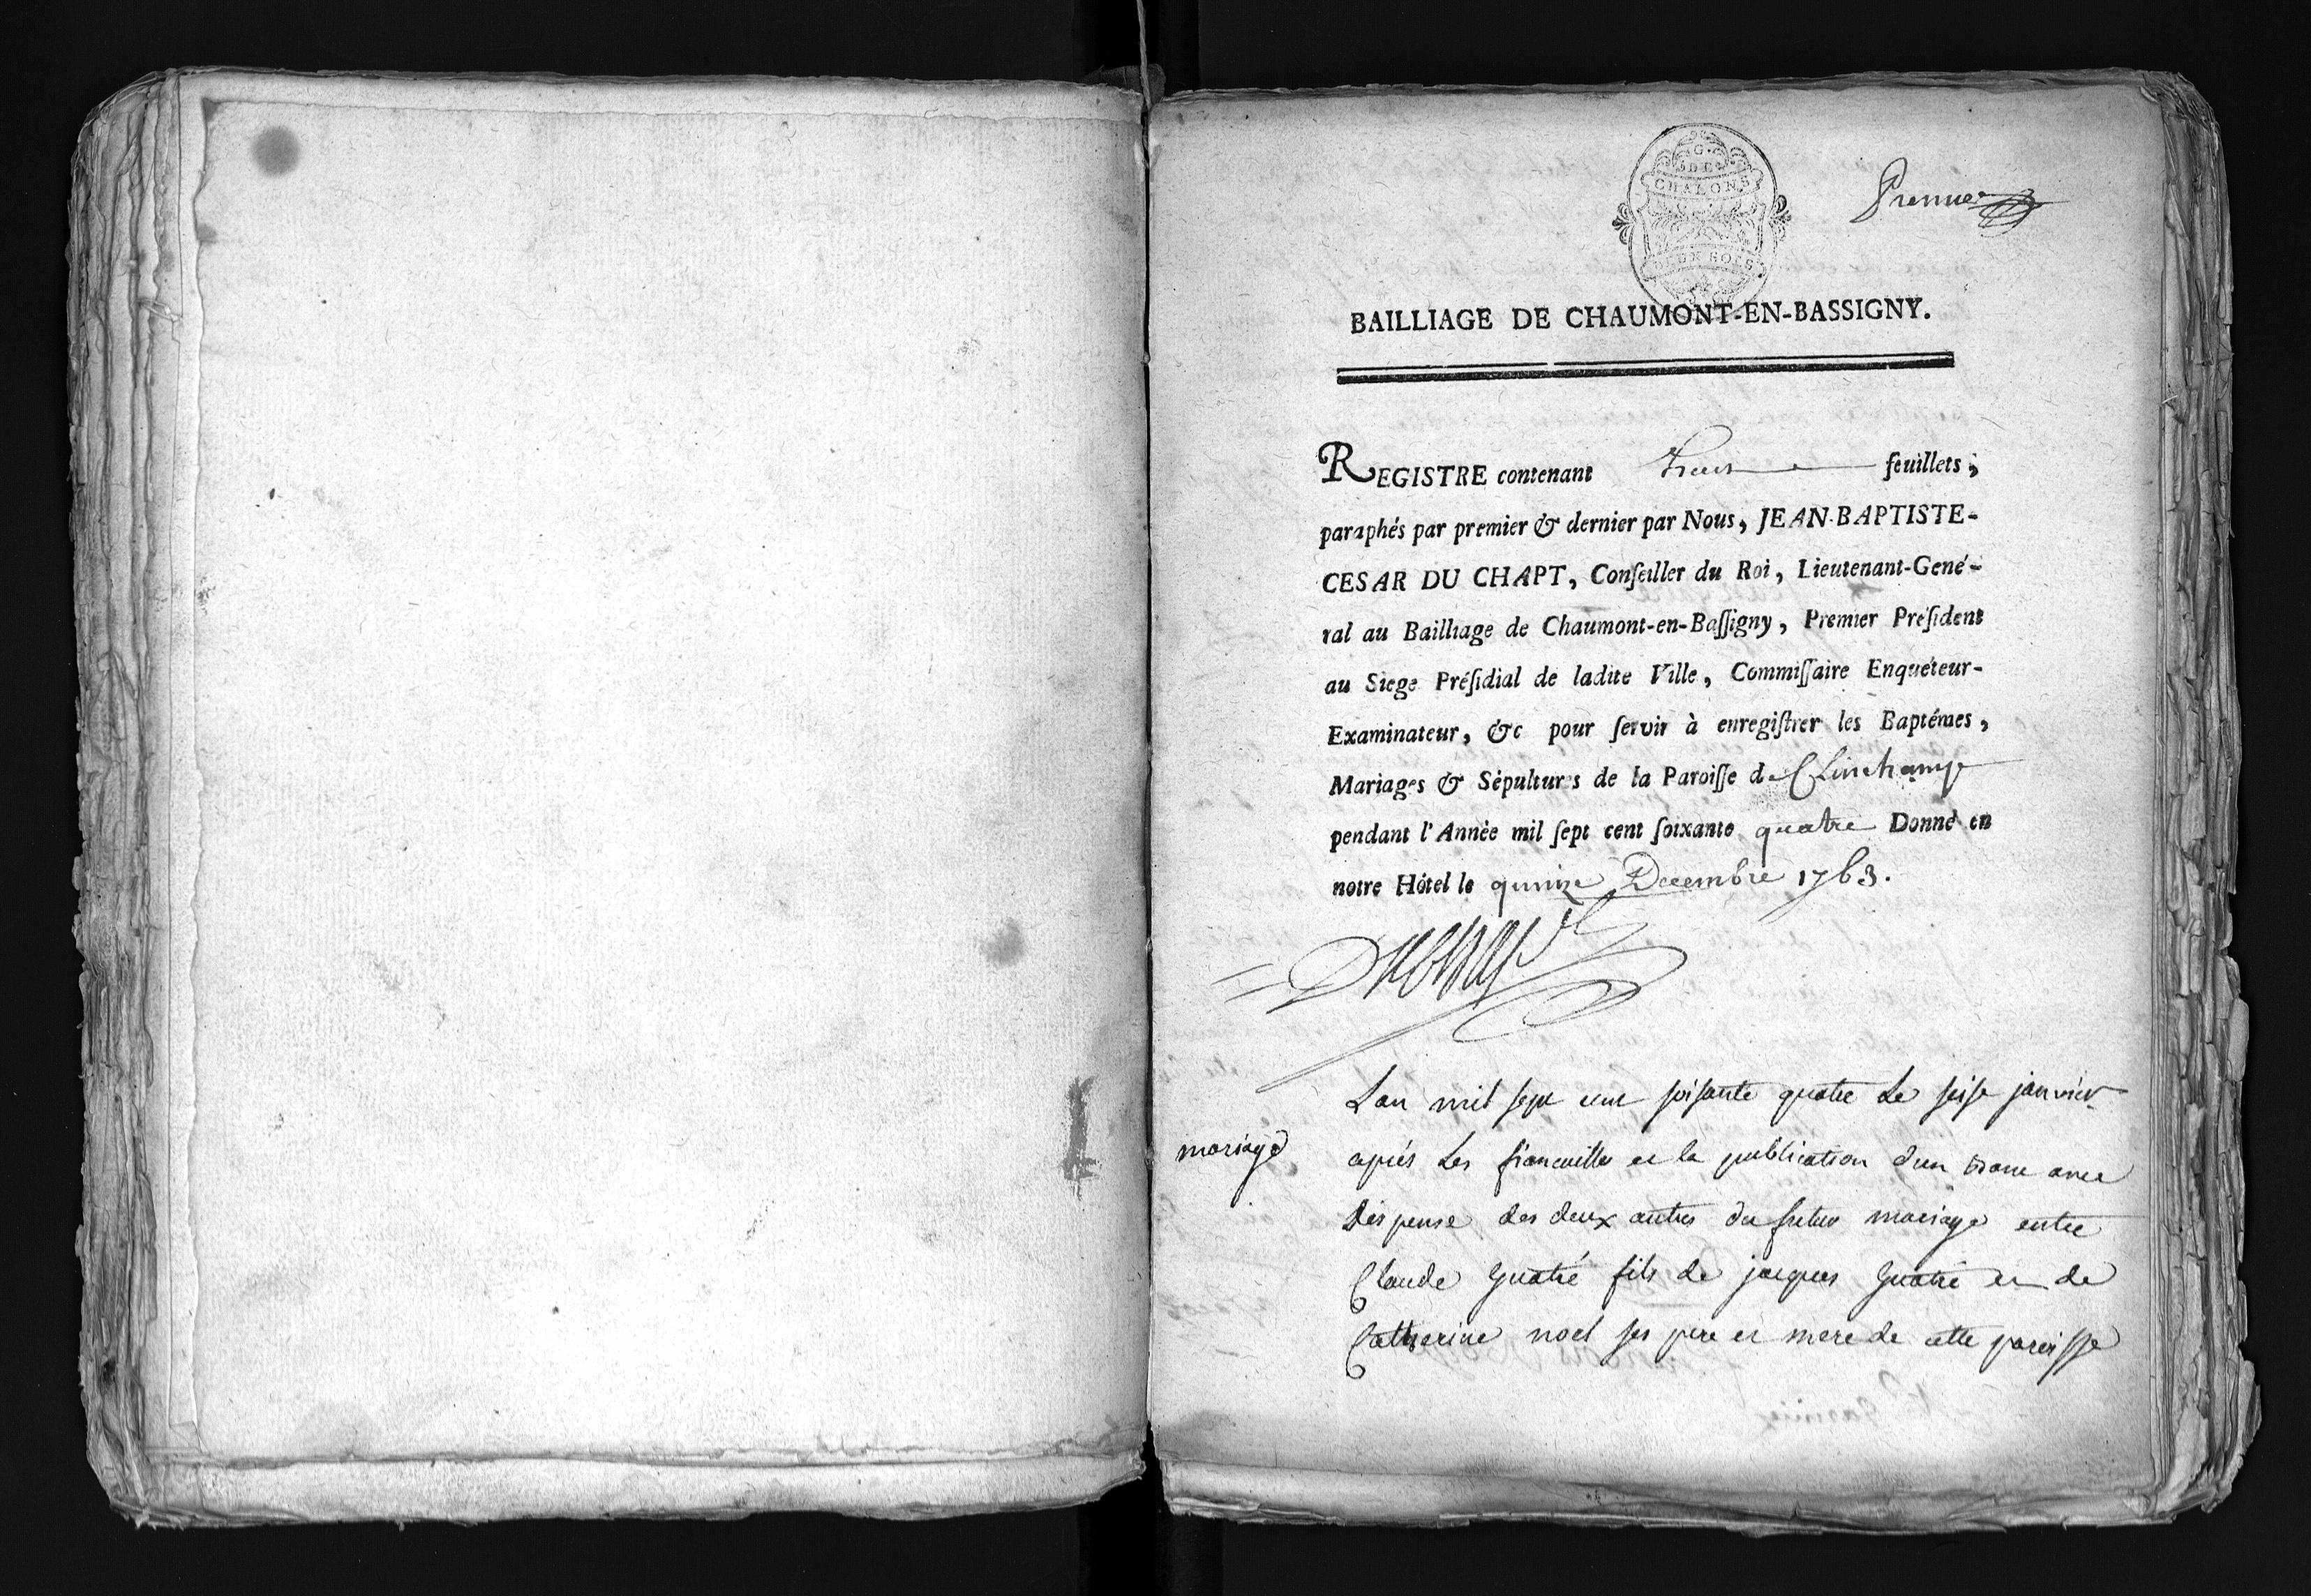 G. DE
CHALONS
DEUX SOLS
Premier
BAILLIAGE DE CHAUMONT-EN-BASSIGNY.
REGISTRE contenant Trois feuillets,
paraphés par premier & dernier par Nous, JEAN-BAPTISTE-
CESAR DU CHAPT, Conſeiller du Roi, Lieutenant-Gené-
ral au Bailliage de Chaumont-en-Baſſigny, Premier Préſident
au Siege Préſidial de ladite Ville, Commiſſaire Enquêteur-
Examinateur, &c pour ſervir à enregiſtrer les Baptêmes,
Mariages & Sépultures de la Paroiſſe de Clinchamp
pendant l'Année mil ſept cent ſoixante quatre Donné en
notre Hôtel le quinze Decembre 1763.
Lan mil sept cent soisante quatre le seise janvier
mariage
aprés les fiancailles et la publication d'un banc avec
dispense des deux autres du futur mariage entre
Claude quatré fils de jacques quatré et de
Catherine noel ses pere et mere de cette paroisse